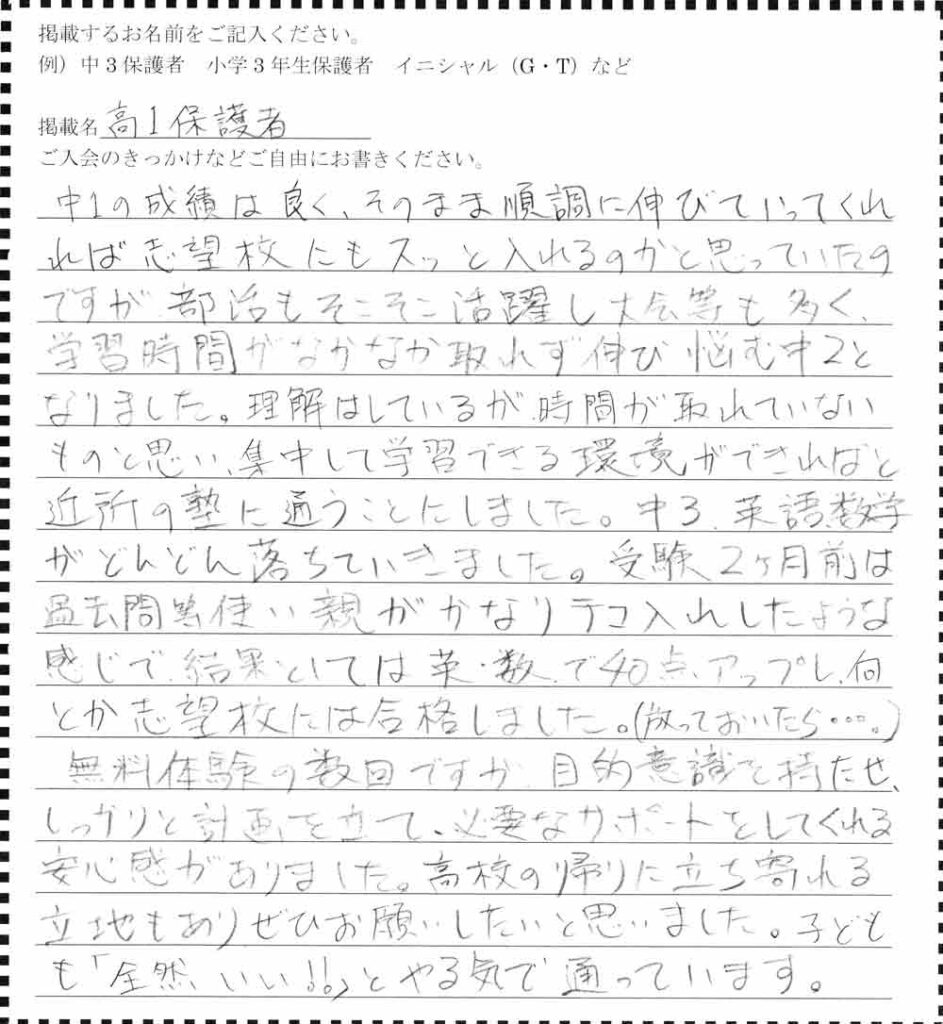 掲載するお名前をご記入ください。
例）中3保護者　小学3年生保護者　イニシャル（G・T）など
掲載名 高1保護者
ご入会のきっかけなどご自由にお書きください。
中1の成績は良く、そのまま順調に伸びていってくれ
れば志望校にもスッと入れるのかと思っていたの
ですが、部活もそこそこ活躍し大会等も多く、
学習時間がなかなか取れず伸び悩む中2と
なりました。理解はしているが、時間が取れていない
ものと思い、集中して学習できる環境ができればと
近所の塾に通うことにしました。中3、英語数学
がどんどん落ちていきました。受験2ヶ月前は
過去問等使い親がかなりテコ入れしたような
感じで、結果としては英・数で40点アップし、何
とか志望校には合格しました。(放っておいたら…。)
無料体験の数回ですが、目的意識を持たせ、
しっかりと計画を立て、必要なサポートをしてくれる
安心感がありました。高校の帰りに立ち寄れる
立地もあり、ぜひお願いしたいと思いました。子ども
も「全然、いい!!」とやる気で通っています。